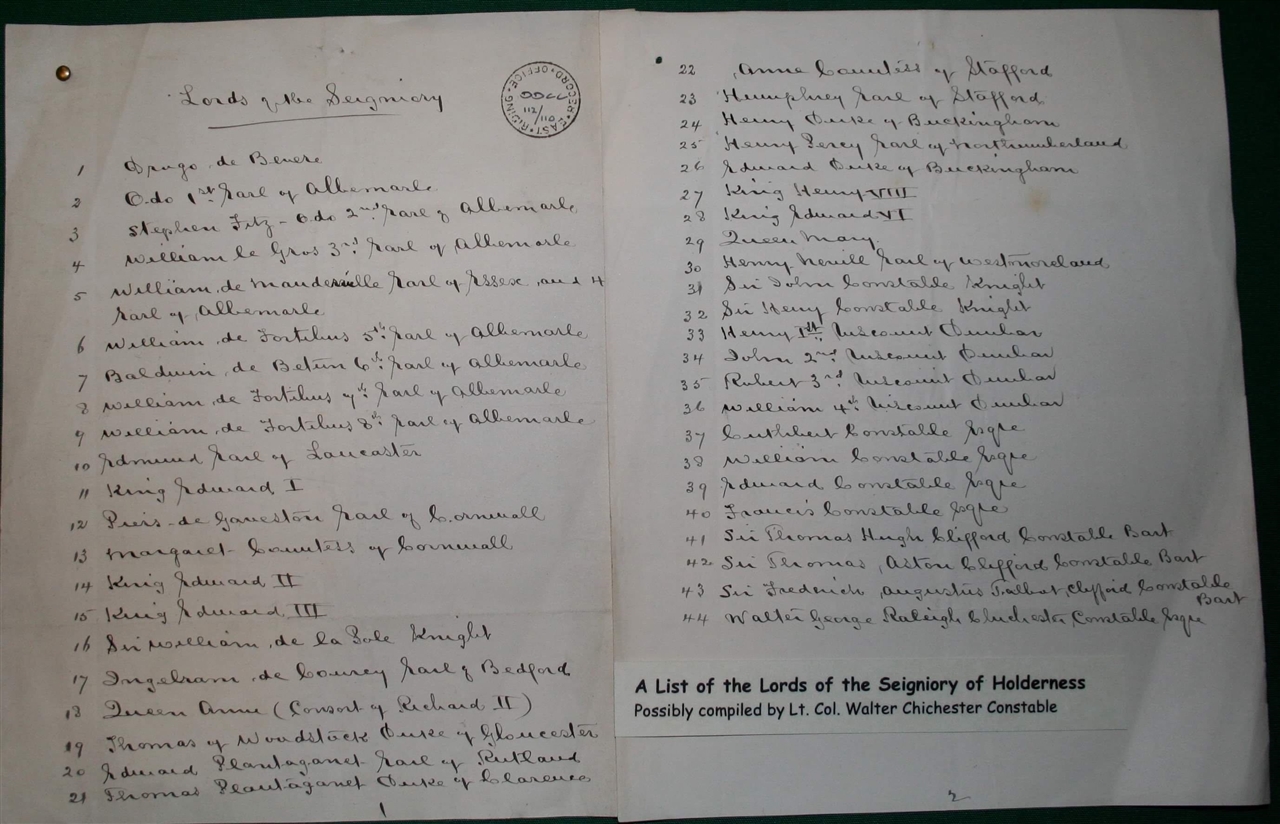 Lords of the Seigniory
EAST RIDING RECORD OFFICE
DDCC
112/110
1 Drogo de Bevere
2 Odo 1st Earl of Albemarle
3 Stephen Fitz-Odo 2nd Earl of Albemarle
4 William le Gros 3rd Earl of Albemarle
5 William de Mandeville Earl of Essex and 4
Earl of Albemarle
6 William de Fortibus 5th Earl of Albemarle
7 Baldwin de Betun 6th Earl of Albemarle
8 William de Fortibus 7th Earl of Albemarle
9 William de Fortibus 8th Earl of Albemarle
10 Edmund Earl of Lancaster
11 King Edward I
12 Piers-de Gaveston Earl of Cornwall
13 Margaret Countess of Cornwall
14 King Edward II
15 King Edward III
16 Sir William de la Pole Knight
17 Ingelram de Courcy Earl of Bedford
18 Queen Anne (Consort of Richard II)
19 Thomas of Woodstock Duke of Gloucester
20 Edward Plantaganet Earl of Rutland
21 Thomas Plantaganet Duke of Clarence
1
22 Anne Countess of Stafford
23 Humphrey Earl of Stafford
24 Henry Duke of Buckingham
25 Henry Percy Earl of Northumberland
26 Edward Duke of Buckingham
27 King Henry VIII
28 King Edward VI
29 Queen Mary
30 Henry Nevill Earl of Westmoreland
31 Sir John Constable Knight
32 Sir Henry Constable Knight
33 Henry 1st Viscount Dunbar
34 John 2nd Viscount Dunbar
35 Robert 3rd Viscount Dunbar
36 William 4th Viscount Dunbar
37 Cuthbert Constable Esqre
38 William Constable Esqre
39 Edward Constable Esqre
40 Francis Constable Esqre
41 Sir Thomas Hugh Clifford Constable Bart
42 Sir Thomas Aston Clifford Constable Bart
43 Sir Frederick Augustus Talbot Clifford Constable
Bart
44 Walter George Raleigh Chichester Constable Esqre
A List of the Lords of the Seigniory of Holderness
Possibly compiled by Lt. Col. Walter Chichester Constable
2